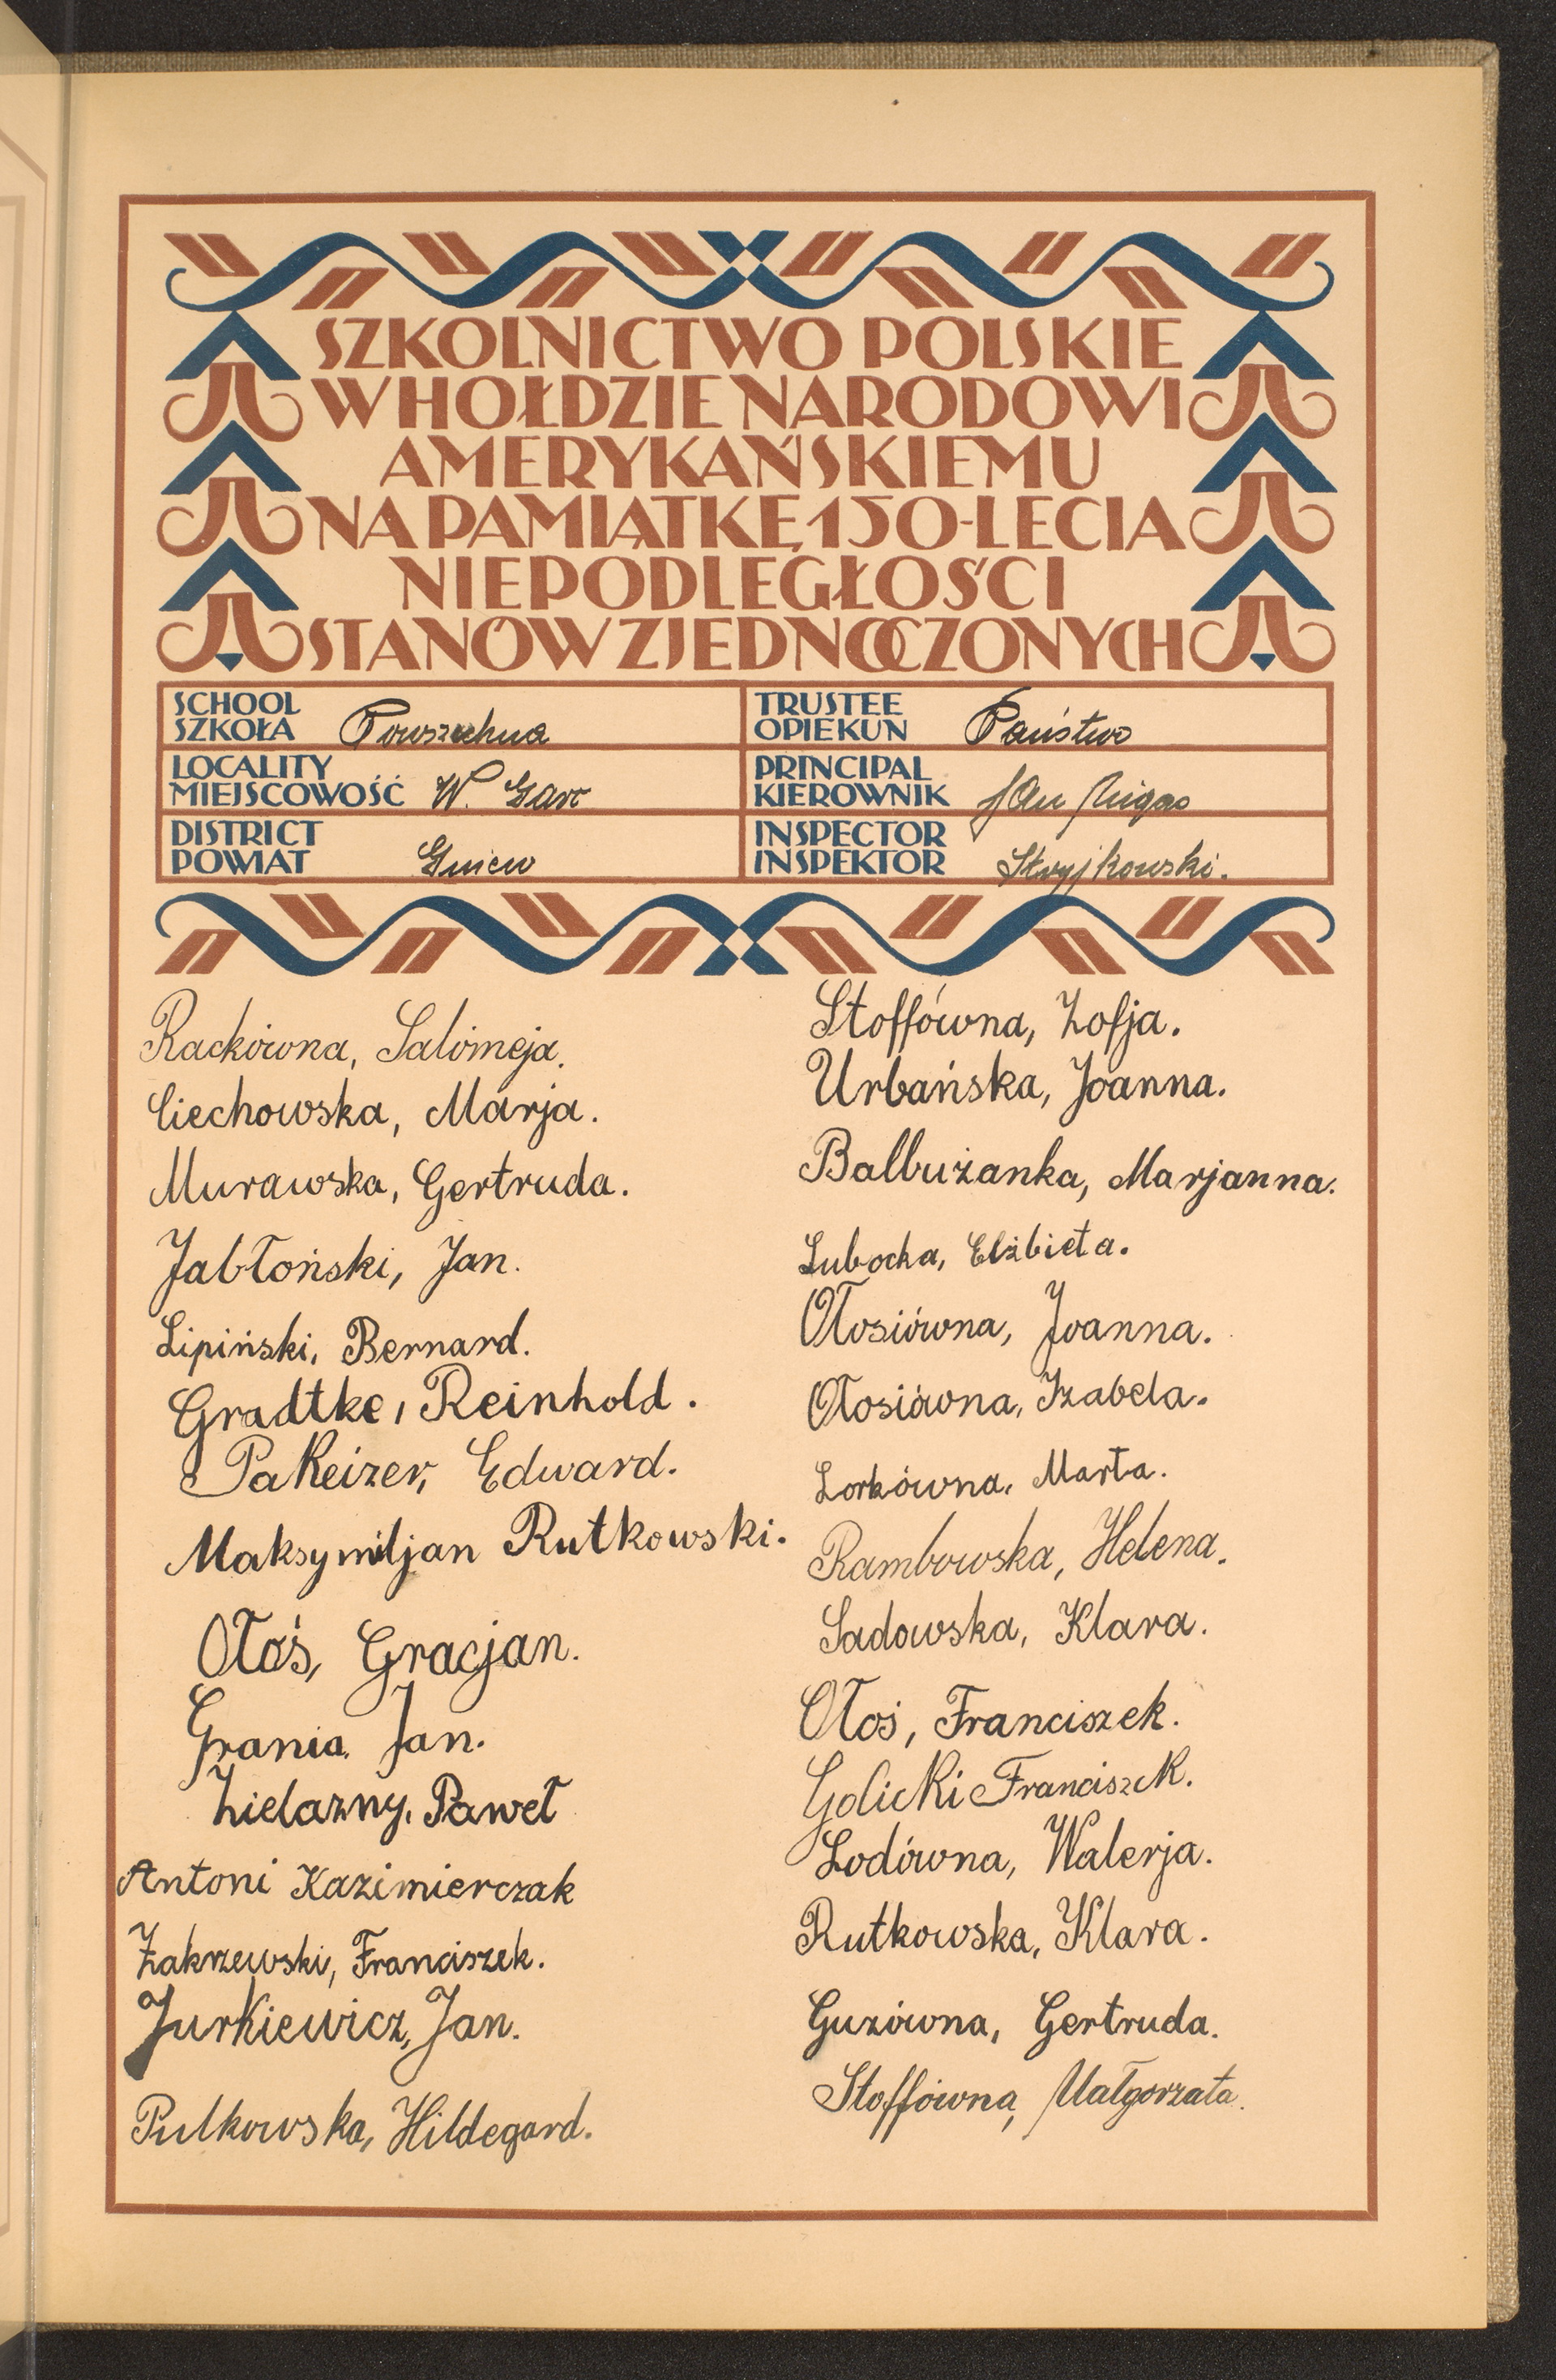 SZKOLNICTWO POLSKIE
W HOŁDZIE NARODOWI
AMERYKAŃSKIEMU
NA PAMIĄTKĘ 150-LECIA
NIEPODLEGŁOŚCI
STANÓW ZJEDNOCZONYCH
SCHOOL
SZKOŁA Powszechna
TRUSTEE
OPIEKUN Państwo
LOCALITY
MIEJSCOWOŚĆ W. Garc
PRINCIPAL
KIEROWNIK Jan
DISTRICT
POWIAT Gniew
INSPECTOR
INSPEKTOR Stryjkowski.
Rackówna, Salomeja.
Ciechowska, Marja.
Murawska, Gertruda.
Jabłoński, Jan.
Lipiński, Bernard.
Gradtke, Reinhold.
Pakeizer, Edward.
Maksymiljan Rutkowski.
Ołoś, Gracjan.
Grania, Jan.
Zielazny, Paweł
Antoni Kazimierczak
Zakrzewski, Franciszek.
Jurkiewicz, Jan.
Pulkowska, Hildegard.
Stoffówna, Zofja.
Urbańska, Joanna.
Balbużanka, Marjanna.
Lubocka, Elżbieta.
Ołosiówna, Joanna.
Ołosiówna, Izabela.
Lorkówna, Marta.
Rambowska, Helena.
Sadowska, Klara.
Ołoś, Franciszek.
Golicki Franciszek.
Lodówna, Walerja.
Rutkowska, Klara.
Guzówna, Gertruda.
Stoffówna, Małgorzata.